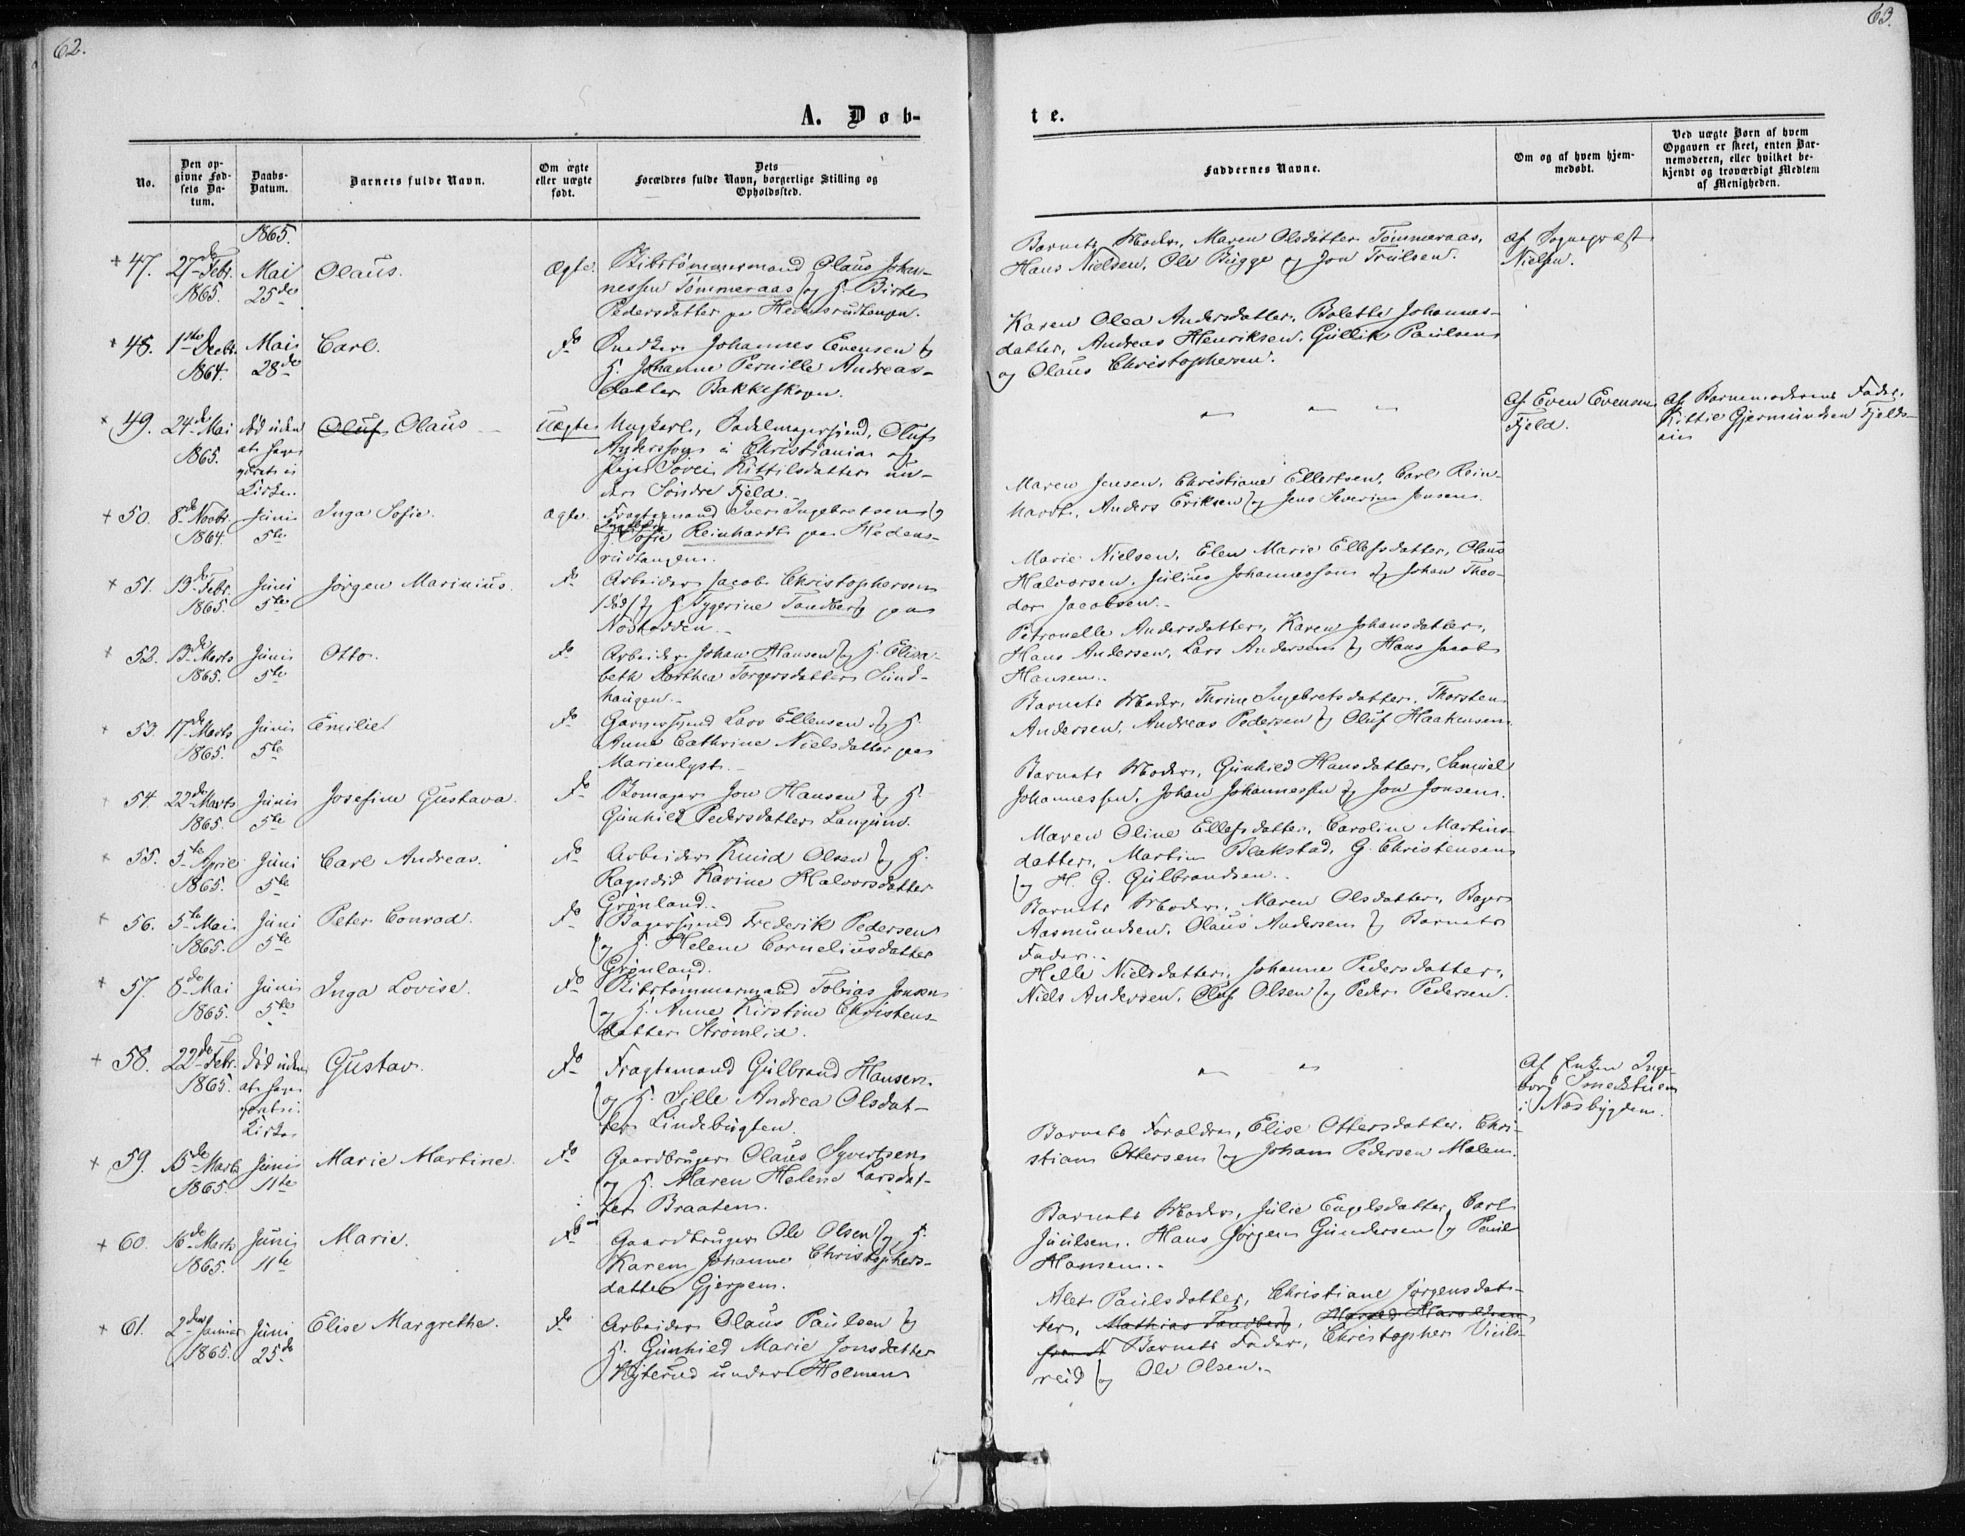 62.
A. Døb-
No.
Den op-
givne Fød-
sels Da-
tum.
Daabs-
Datum.
Barnets fulde Navn.
Om ægte
eller uægte
født.
Dets
Forældres fulde Navn, borgerlige Stilling og
Opholdssted.
1865.
+ 47. 27de Febr. 1865. Mai 25de Olaus. Ægte.
Skibstømmermand Olaus Johan-
nessen Tømmeraas og H. Birte
Pedersdatter paa Hedensrudtangen.
+ 48. 1ste Decbr. 1864. Mai 28de Carl. Do
Snedker Johannes Evensen og
H. Johanne Pernille Andreas-
datter Bakkeskoven.
× 49. 24de Mai 1865. død uden at have været i Kirken. Oluf Olaus Uægte
Ungkarl, Sadelmagersvend, Oluf
i Christiania og
Pige Kittilsdatter un-
der Søndre Fjeld.
+ 50. 8de Novbr. 1864. Juni 5te Inga Sofie. ægte.
Fragtemand Iver Ingebretsen og
H. Sofie Reinhardt paa Hedens-
rudtangen.
+ 51. 13de Febr. 1865. Juni 5te Jørgen Marinius. Do
Arbeider Jacob Christophersen
/død/ og H. Tygerine Tandberg paa
Nøstodden.
+ 52. 13de Marts 1865. Juni 5te Otto. Do
Arbeider Johan Hansen og H. Elisa-
beth Dorthea Torgersdatter Sund-
haugen.
+ 53. 17de Marts 1865. Juni 5te Emilie Do
Garversvend Lars Ellensen og H.
Anne Cathrine Nielsdatter paa
Marienlyst.
+ 54. 22de Marts 1865. Juni 5te Josefine Gustava. Do
Bomager Jon Hansen og H.
Gunhild Pedersdatter Langum.
+ 55. 5te April 1865. Juni 5te Carl Andreas. Do
Arbeider Knud Olsen og H.
Ragndid Karine Halvorsdatter
Grønland.
+ 56. 5te Mai 1865. Juni 5te Peter Conrad. Do
Bagersvend Frederik Pedersen
og H. Helene Corneliusdatter
Grønland.
+ 57. 8de Mai 1865. Juni 5te Inga Lovise. Do
Skibstømmermand Tobias Jensen
og H. Anne Kirstine Christens-
datter Strømlid.
+ 58. 22de Febr. 1865. Død uden at have været i Kirken Gustav. Do
Fragtemand Gulbrand Hansen.
og H. Sille Andrea Olsdat-
ter Lindebugten.
+ 59. 15de Marts 1865. Juni 11te Marie Martine. Do
Gaardbruger Olaus Syvertsen
og H. Maren Helene Larsdat-
ter Braaten.
+ 60. 16de Marts 1865. Juni 11te Marie. Do
Gaardbruger Ole Olsen og H.
Karen Johanne Christophers-
datter Gjerpen.
+ 61. 2den Januar 1865. Juni 25de Elise Margrethe. Do
Arbeider Olaus Paulsen og
H. Gunhild Marie Jonsdatter
Hyterud under Holmen
63.
te.
Faddernes Navne.
Om og af hvem hjem-
medøbt.
Ved uægte Børn af hvem
Opgaven er skeet, enten Bar-
nemoderen, eller hvilket be-
kjendt og troværdigt Medlem
af Menigheden.
Barnets Moder, Maren Olsdatter Tømmeraas,
Hans Nielsen, Ole Bugge og Jon Truulsen.
Af Sognepræst
Nielsen.
Karen Olea Andersdatter, Bolette Johannes-
datter, Andreas Henriksen, Gullik Paulsen
og Olaus Christophersen.
Af Even Evensen
Fjeld.
Af Barnemoderens Fader,
Kittil Gjermundsen Fjelds-
eie
Maren Jensen, Christiane Ellertsen, Carl Rein-
hardt, Anders Eriksen og Jens Severin Jensen.
Marie Nielsen, Elen Marie Ellefsdatter, Olaus
Halvorsen, Julius Johannessen og Johan Theo-
dor Jacobsen.
Petronelle Andersdatter, Karen Johansdatter,
Hans Andersen, Lars Andersen og Hans Jacob
Hansen.
Barnets Moder, Thrine Ingebretsdatter, Thorsten
Andersen, Andreas Pedersen og Oluf Haakensen
Barnets Moder, Gunhild Hansdatter, Samuel
Johannessen, Johan Johannessen og Jon Jonsen.
Maren Oline Ellefsdatter, Caroline Martins-
datter, Martin Blakstad, G. Christensen
og H. G. Gulbrandsen.
Barnets Moder, Maren Olsdatter, Bager
Aasmundsen, Olaus Andersen og Barnets
Fader.
Helle Nielsdatter, Johanne Pedersdatter,
Niels Andersen, Oluf Olsen og Peder Pedersen.
Af Enken Inge-
borg Smedstuen
i Næsbygden.
Barnets Forældre, Elise Ottersdatter, Chri-
stian Ottersen og Johan Pedersen Molen.
Barnets Moder, Julie Engelsdatter, Carl
Juulsen. Hans Jørgen Gundersen og Paul
Hansen.
Alet Paulsdatter, Christiane Jørgensdat-
ter, Mathias Tandberg,
Barnets Fader, Christopher
og Ole Olsen.